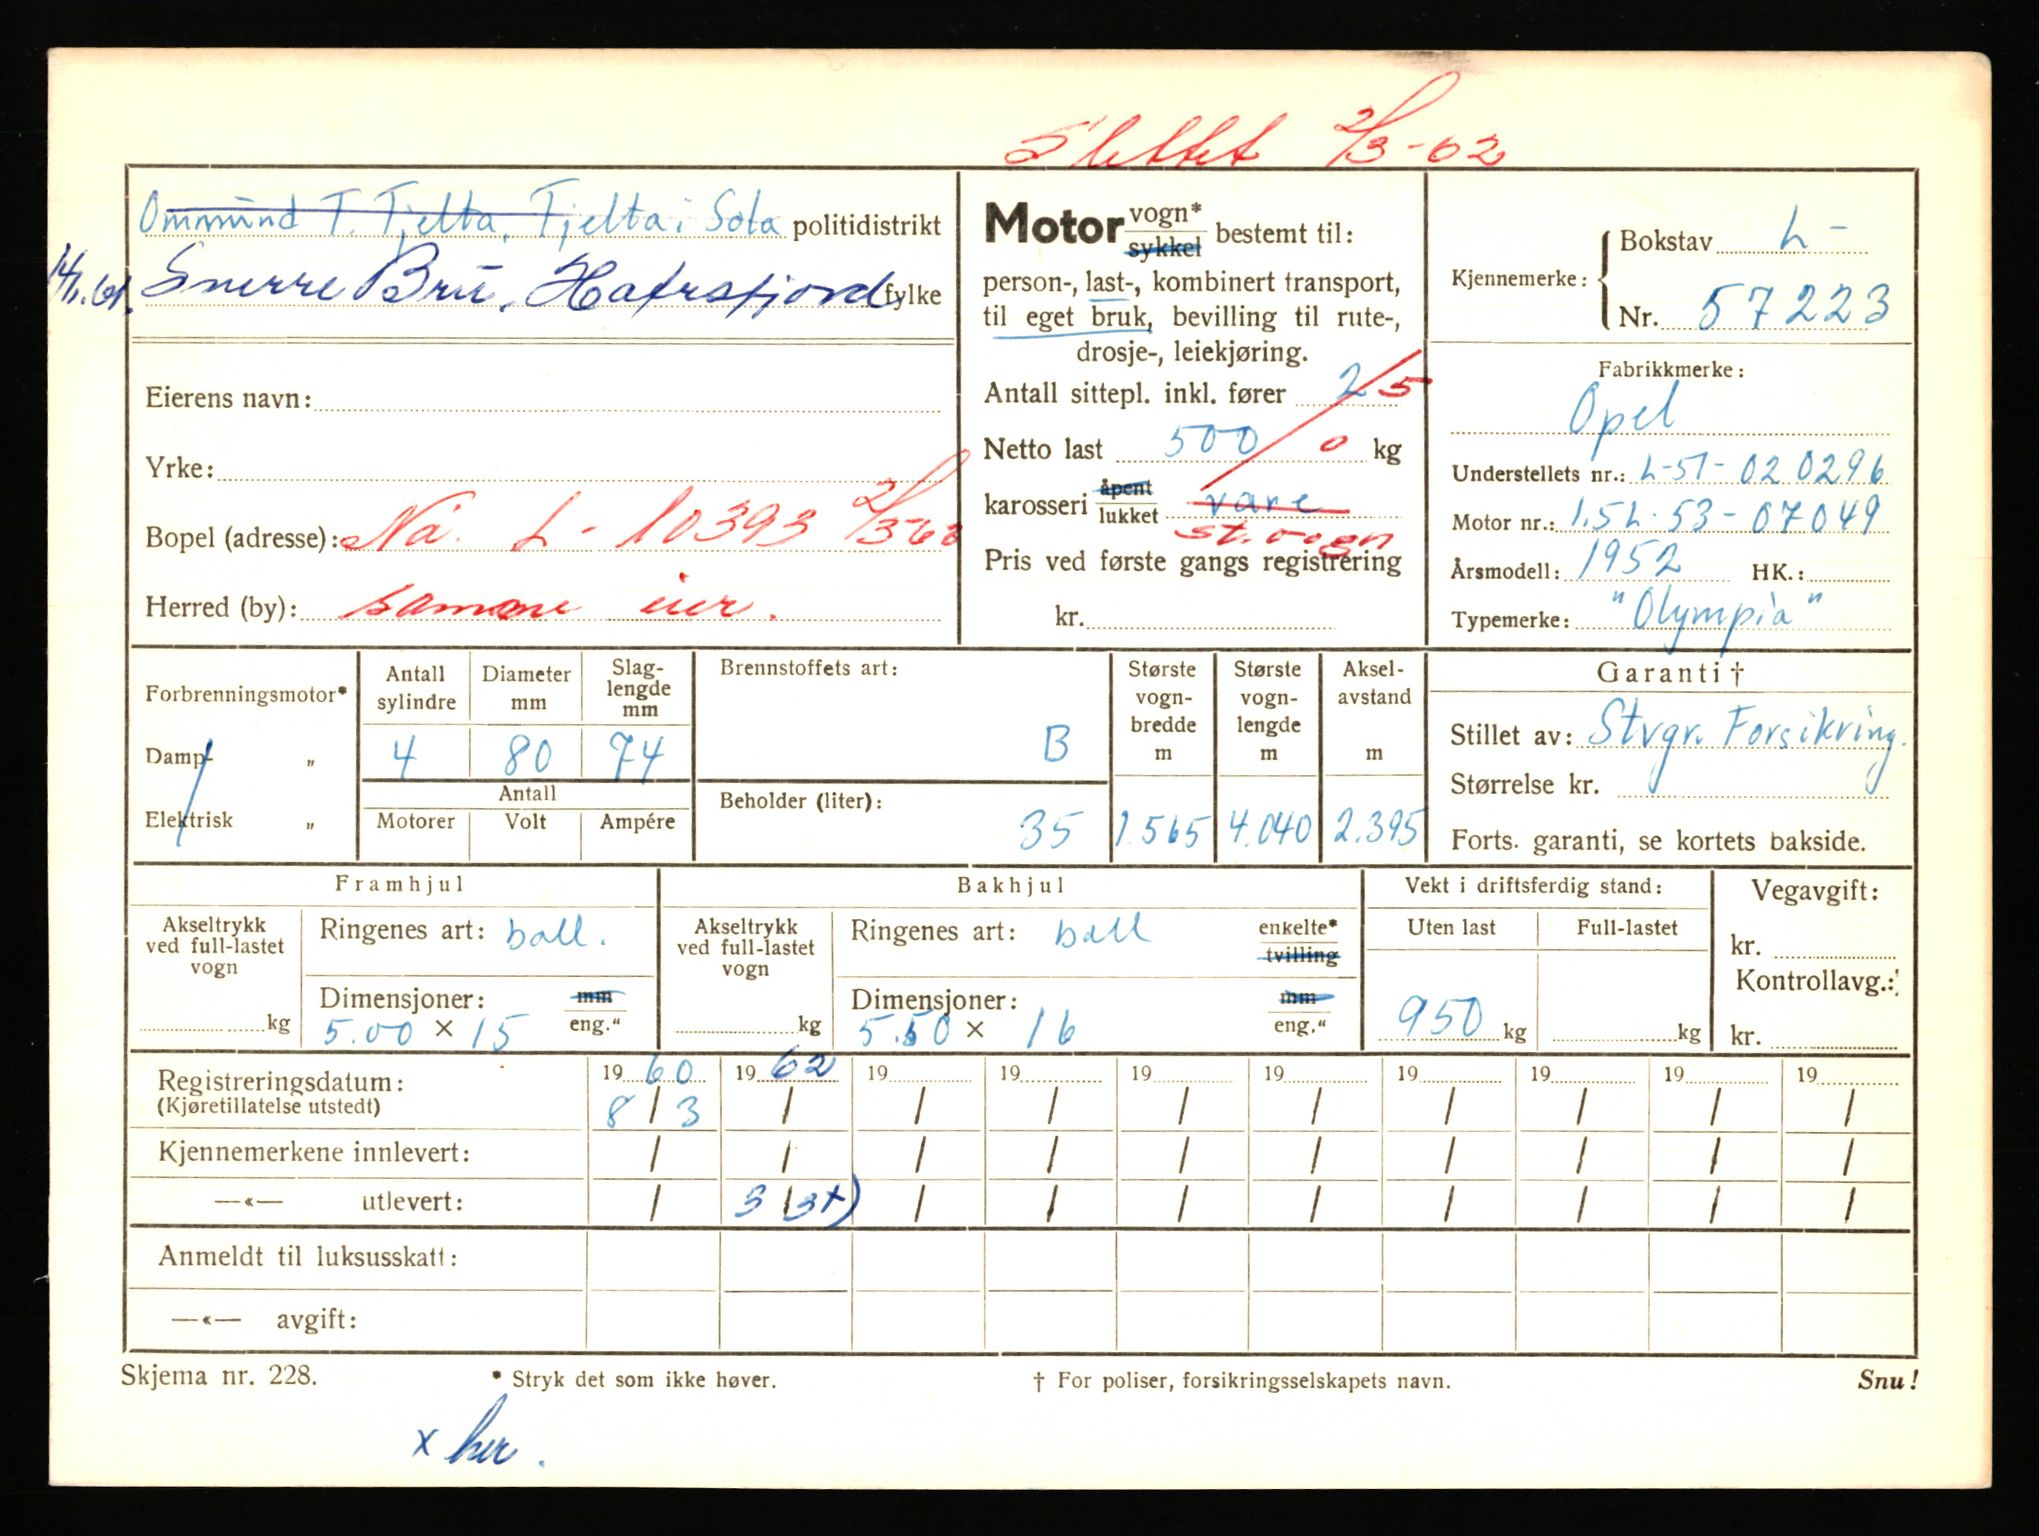 Slettet 2/3-62
Ommund T. Tjelta, Tjelta i Sola politidistrikt
14/1.61. Snerre Brü, Hafrsfjord fylke
Eierens navn:
Yrke:
Bopel (adresse): Nå. L - 10393 2/3-62
Herred (by): samme eier.
Motor vogn* sykkel bestemt til:
person-, last-, kombinert transport,
til eget bruk, bevilling til rute-,
drosje-, leiekjøring.
Antall sittepl. inkl. fører 2 / 5
Netto last 500 / 0 kg
karosseri åpent lukket vare
st.vogn
Pris ved første gangs registrering
kr.
Kjennemerke: Bokstav L -
Nr. 57223
Fabrikkmerke:
Opel
Understellets nr.: L-51-020296
Motor nr.: 1,5L-53-07049
Årsmodell: 1952 HK.:
Typemerke: "Olympia"
Forbrenningsmotor*
Damp- „
Elektrisk „
Antall sylindre Diameter mm Slaglengde mm
4 80 74
Antall
Motorer Volt Ampére
Brennstoffets art:
B
Beholder (liter):
35
Største vognbredde m
1.565
Største vognlengde m
4.040
Akselavstand m
2.395
Garanti †
Stillet av: Stvgr. Forsikring.
Størrelse kr.
Forts. garanti, se kortets bakside.
Framhjul
Akseltrykk ved full-lastet vogn
kg
Ringenes art: ball.
Dimensjoner: mm eng."
5.00 × 15
Bakhjul
Akseltrykk ved full-lastet vogn
kg
Ringenes art: ball enkelte* tvilling
Dimensjoner: mm eng."
5.50 × 16
Vekt i driftsferdig stand:
Uten last Full-lastet
950 kg kg
Vegavgift:
kr.
Kontrollavg.:
kr.
Registreringsdatum: 1960 1962 19 19 19 19 19 19 19 19
(Kjøretillatelse utstedt) 8 / 3 / / / / / / / / /
Kjennemerkene innlevert: / / / / / / / / / /
—«— utlevert: / 3 / 3 x) / / / / / / / /
Anmeldt til luksusskatt:
—«— avgift:
Skjema nr. 228. * Stryk det som ikke høver. † For poliser, forsikringsselskapets navn. Snu!
x her.